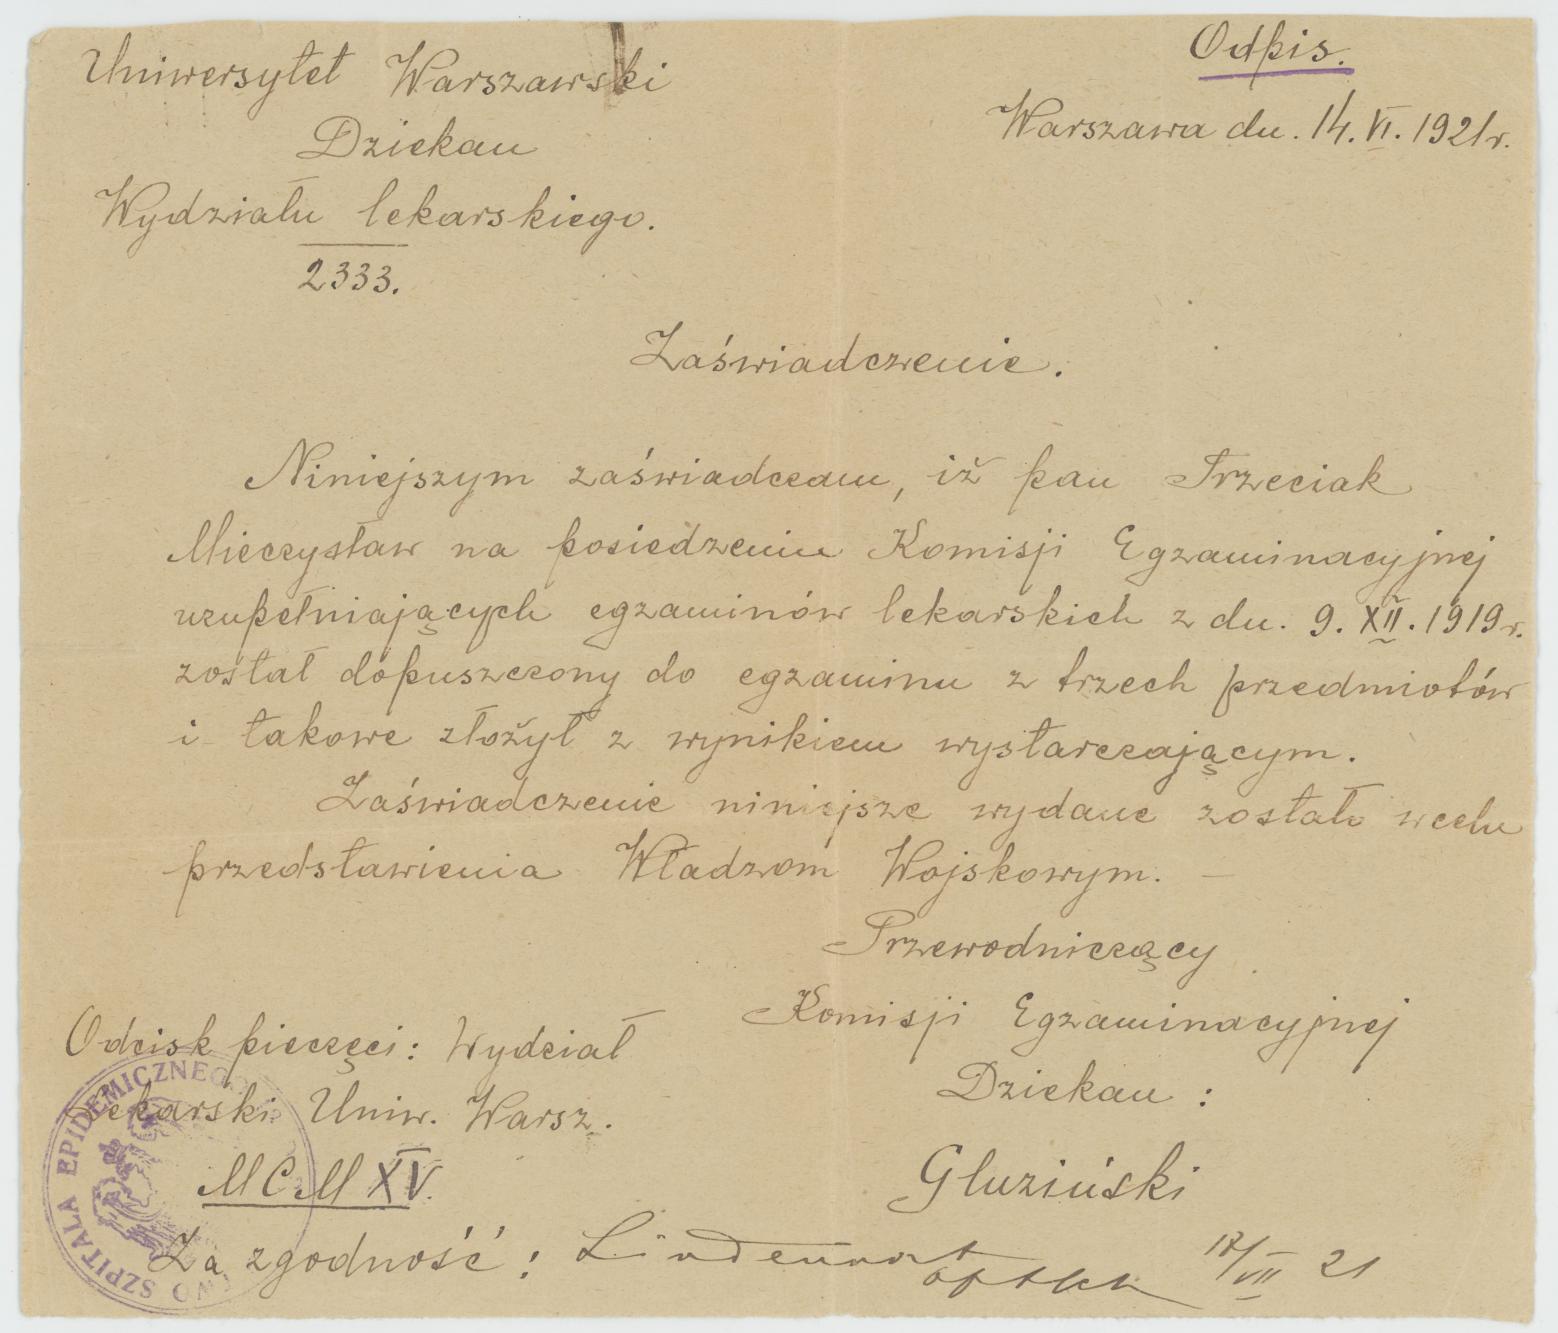 Odpis.
Uniwersytet Warszawski
Warszawa dn. 14. VI. 1921 r.
Dziekan
Wydziału lekarskiego.
2333.
Zaświadczenie.
Niniejszym zaświadczam, iż pan Trzeciak
Mieczysław na posiedzeniu Komisji Egzaminacyjnej
uzupełniających egzaminów lekarskich z dn. 9. XII. 1919 r.
został dopuszczony do egzaminu z trzech przedmiotów
i takowe złożył z wynikiem wystarczającym.
Zaświadczenie niniejsze wydane zostało w celu
przedstawienia Władzom Wojskowym. —
Przewodniczący
Komisji Egzaminacyjnej
Dziekan :
Gluziński
Odcisk pieczęci: Wydział
Lekarski Uniw. Warsz.
MCMXV.
Za zgodność: 17/VII 21
SZPITALA EPIDEMICZNEGO